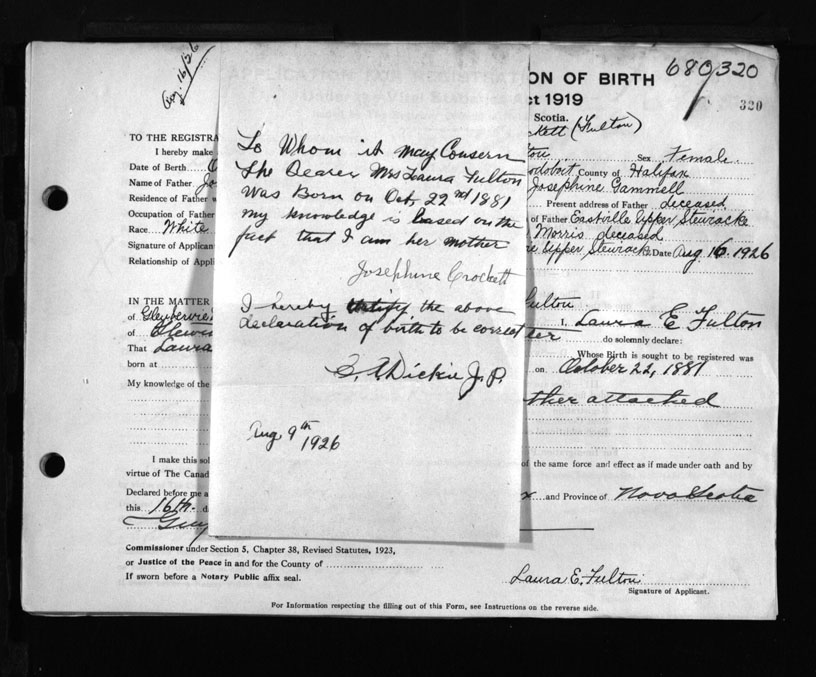 Aug. 16/26
ON OF BIRTH
680320
ct 1919
320
Scotia.
TO THE REGISTRA
ckett (Fulton)
I hereby make
ton Sex Female.
Date of Birth
odoboit County of Halifax
Name of Father Jo
Josephine Gammell
Residence of Father w
Present address of Father deceased
Occupation of Father
of Father Eastville Upper Stewiacke
Race White
Morris deceased
Signature of Applican
Upper Stewiacke Date Aug 16 1926
Relationship of Appli
To Whom it May Consern
The Bearer Mrs Laura Fulton
Was Born on Oct. 22nd 1881
my knowledge is based on the
fact that I am her mother
Josephine Crockett
I hereby certify the above
declaration of birth to be correct
Dickie J.P.
Aug 9th
1926
IN THE MATTER
Fulton
of
I, Laura E Fulton
of
do solemnly declare:
That Laura
Whose Birth is sought to be registered was
born at
on October 22, 1881
My knowledge of the
ther attached
I make this sol
of the same force and effect as if made under oath and by
virtue of The Canad
Declared before me a
x and Province of Nova Scotia
this 16th d
Commissioner under Section 5, Chapter 38, Revised Statutes, 1923,
or Justice of the Peace in and for the County of
If sworn before a Notary Public affix seal.
Laura E. Fulton
Signature of Applicant.
For Information respecting the filling out of this Form, see Instructions on the reverse side.